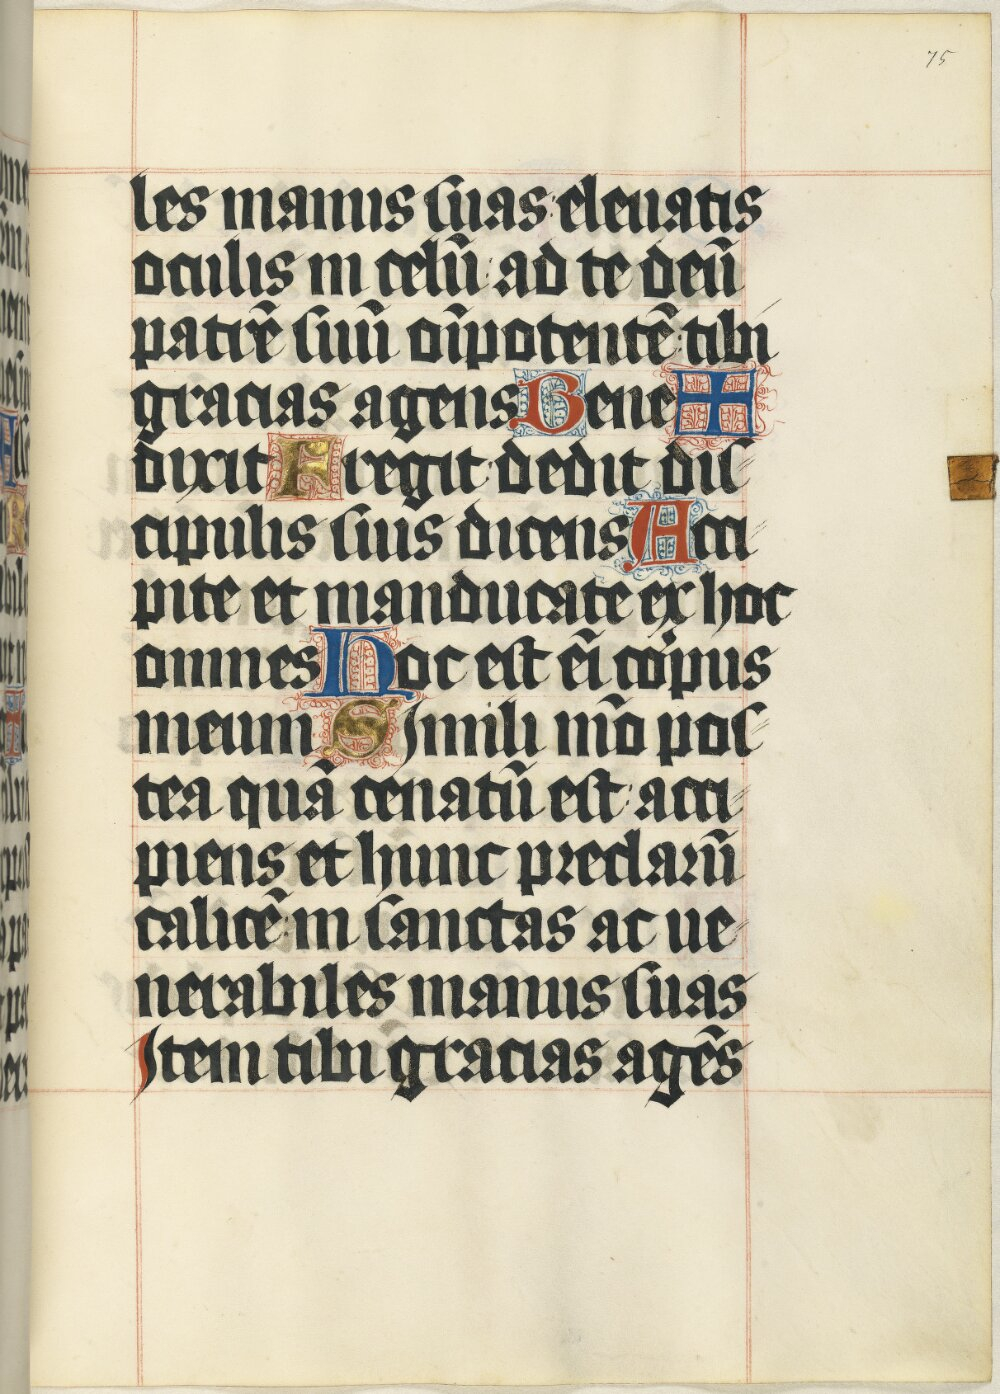 75
les manus suas: eleuatis
oculis in celū: ad te deū
patrē suū oīpotentē: tibi
gracias agens Bene ✚
dixit Fregit: dedit dis
cipulis suis dicens Acci
pite et manducate ex hoc
omnes Hoc est eī corpus
meum Simili mōo pos
tea quā cenatū est: acci
piens et hunc preclarū
calicē: in sanctas ac ue
nerabiles manus suas
Item tibi gracias agēs